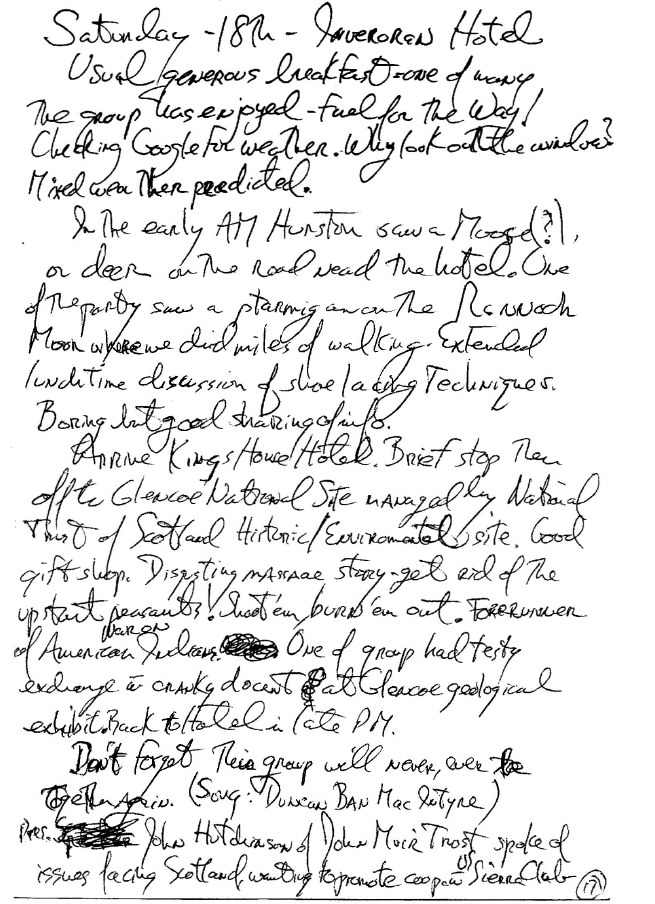 Saturday - 18th - Inveroran Hotel
Usual generous breakfast - one of many
the group has enjoyed - Fuel for the Way!
Checking Google for weather. Why look out the window?
Mixed weather predicted.
In the early AM Hunston saw a Moose(?),
or deer on the road nead the hotel. One
of the party saw a ptarmigan on the Rannoch
Moor where we did miles of walking. Extended
lunchtime discussion of shoe lacing Techniques.
Boring but good sharing of info.
Arrive Kings House Hotel. Brief stop Then
off to Glencoe National Site managed by National
Trust of Scotland Historic/Enviromental site. Good
gift shop. Disgusting massacre story - get rid of the
upstart peasants! Shoot 'em, burn 'em out. Forerunner
of American Indian One of group had testy
exchange w cranky docent at Glencoe geological
exhibit. Back to Hotel in late PM.
Don't forget This group will never, ever be
Together Again. (Song: Duncan Ban MacIntyre)
Pres. John Hutchinson of John Muir Trust spoke of
issues facing Scotland, wanting to promote coop w US Sierra Club
17